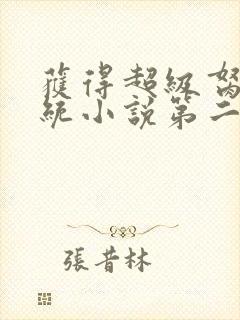 獲得超級
統小說第二
張昔林